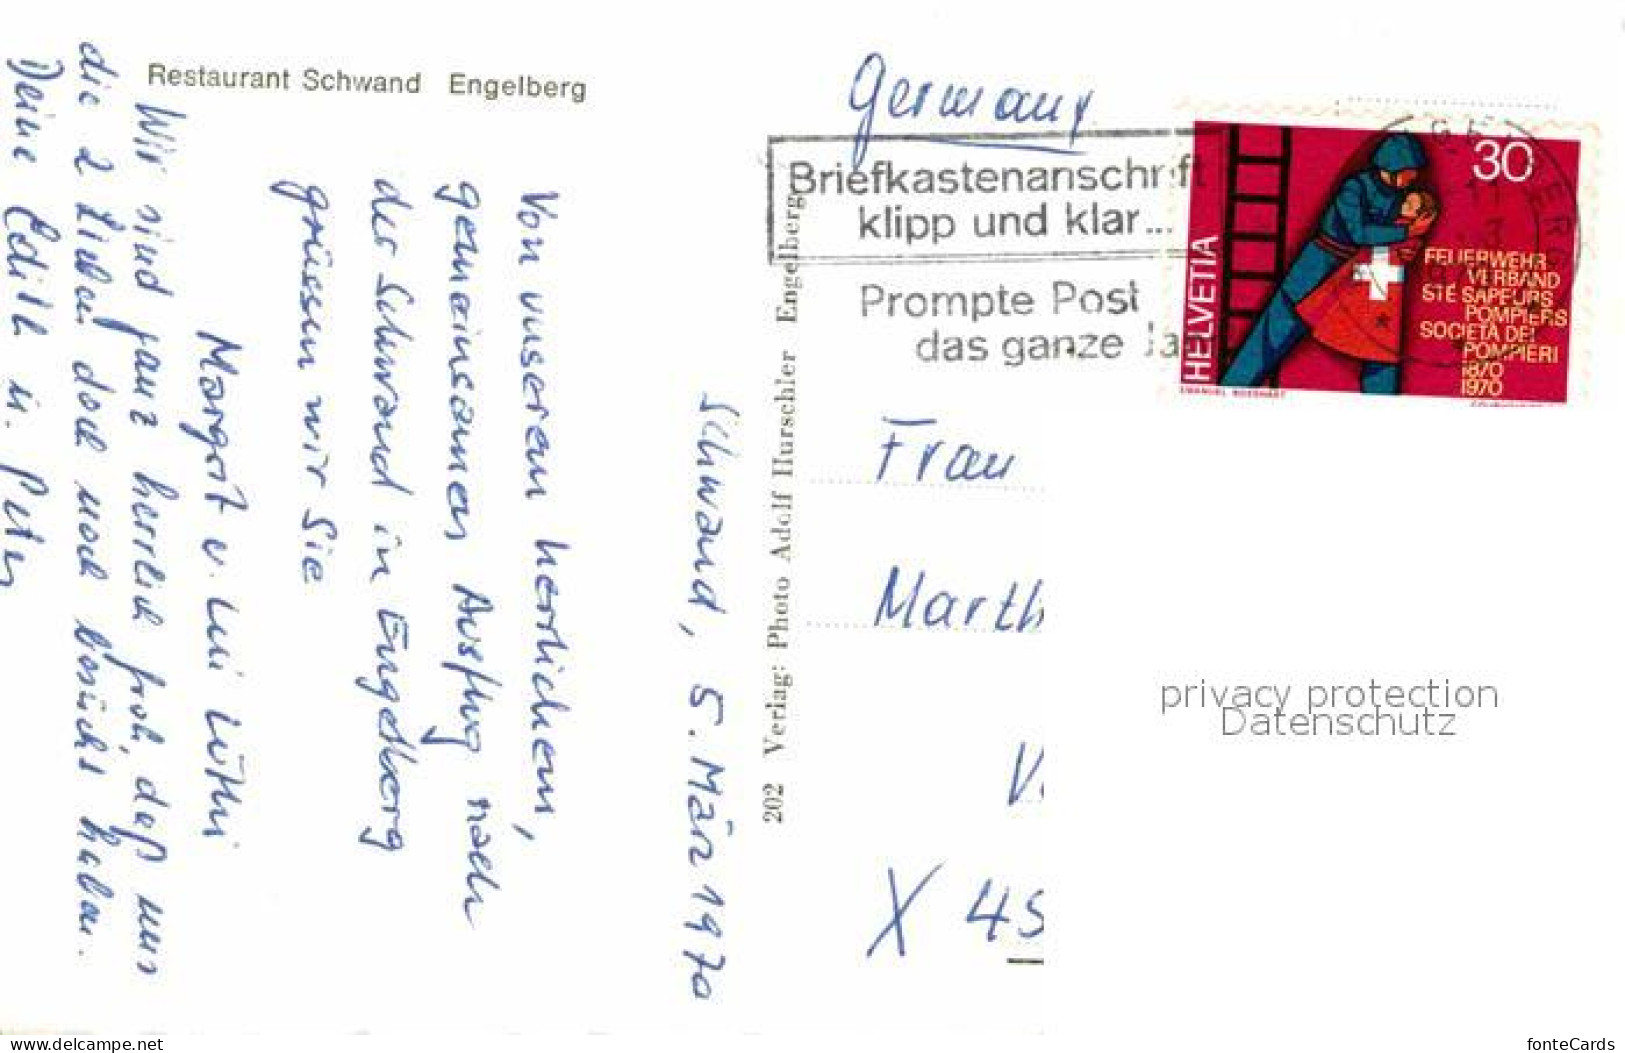 Restaurant Schwand Engelberg
Schwand, 5. März 1970
Von unserem herrlichen,
gemeinsamen Ausflug nach
der Schwand in Engelberg
grüssen wir Sie
Margrit u. Lüthi
Wir sind ganz herrlich froh, daß uns
die 2 Lieben doch noch besucht haben.
Deine Edith u. Peter
202 Verlag: Photo Adolf Hurschler Engelberg
Germany
Briefkastenanschrift
klipp und klar...
Prompte Post
das ganze Ja
HELVETIA
30
FEUERWEHR
VERBAND
STÉ SAPEURS
POMPIERS
SOCIETÀ DEI
POMPIERI
1870
1970
Frau
Marth
V
X 45
privacy protection
Datenschutz
www.delcampe.net
fonteCards